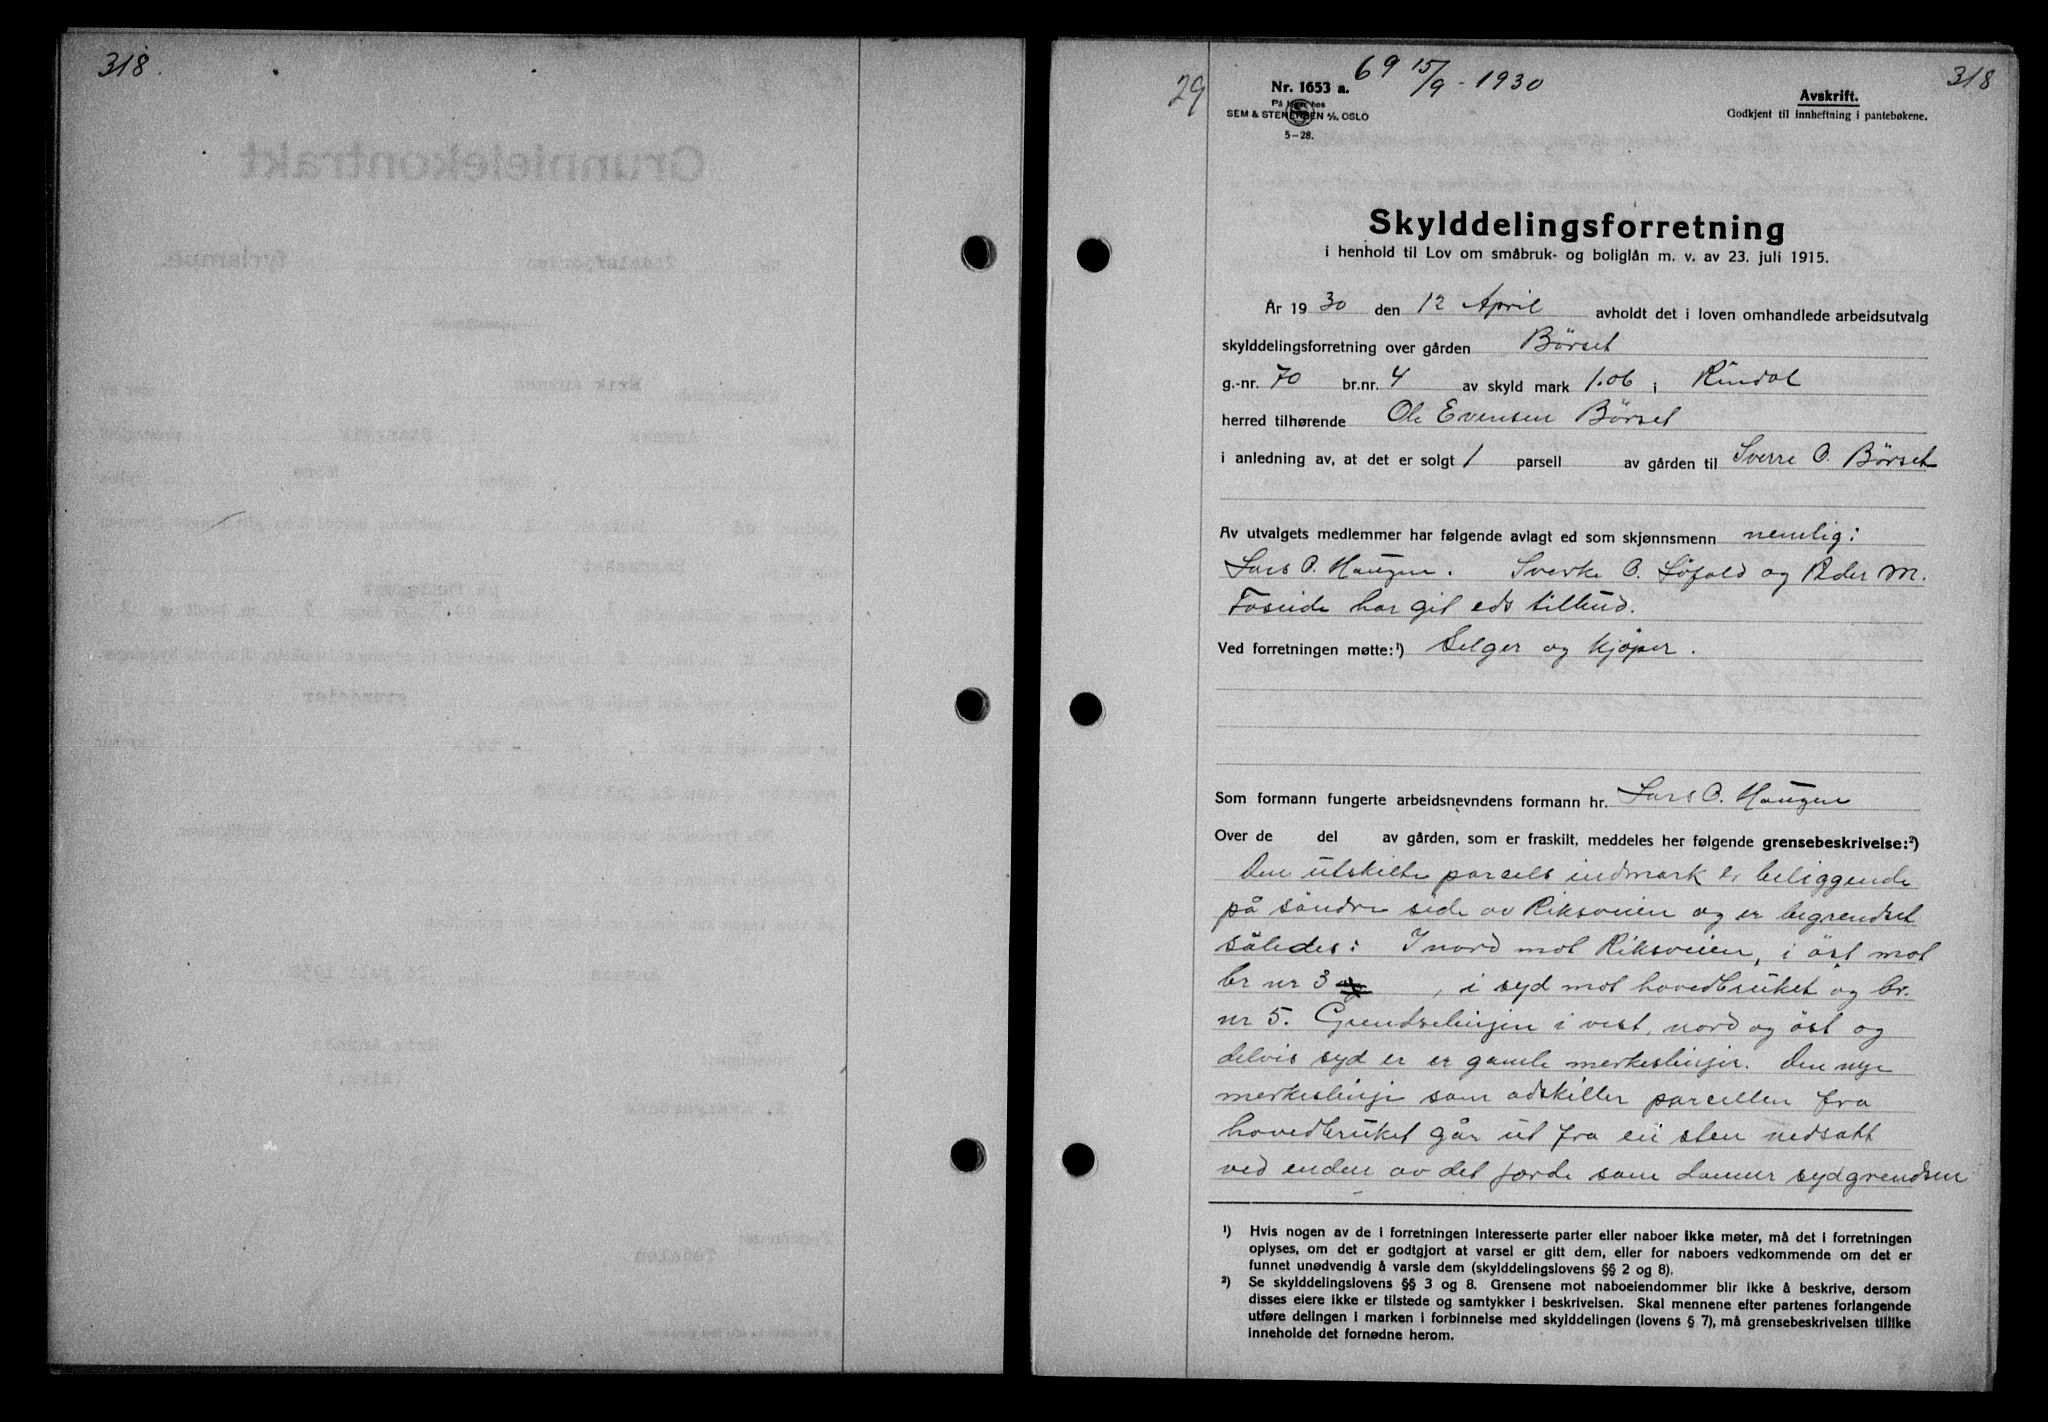 318.
29
69 15/9 - 1930
318
Nr. 1653 a.
På lager hos
SEM & STENERSEN A/S, OSLO
5-28.
Avskrift.
Godkjent til innheftning i pantebøkene.
Skylddelingsforretning
i henhold til Lov om småbruk- og boliglån m. v. av 23. juli 1915.
År 1930 den 12 April avholdt det i loven omhandlede arbeidsutvalg
skylddelingsforretning over gården Börset
g.-nr. 70 br.nr. 4 av skyld mark 1.06 i Rindal
herred tilhørende Ole Evensen Börset
i anledning av, at det er solgt 1 parsell av gården til Sverre O. Börset
Av utvalgets medlemmer har følgende avlagt ed som skjønnsmenn nemlig:
Lars O. Haugen. Sverke O. Löfald og Peder M.
Foseide har git eds tilbud.
Ved forretningen møtte:¹) Selger og kjöper.
Som formann fungerte arbeidsnevndens formann hr. Lars O. Haugen
Over de del av gården, som er fraskilt, meddeles her følgende grensebeskrivelse:²)
Den utskilte parcels indmark er beliggende
på söndre side av Riksveien og er begrendset
således: I nord mot Riksveien, i öst mot
br nr 3 og, i syd mot hovedbruket og br.
nr 5. Grendselinjen i vest, nord og öst og
delvis syd er er gamle merkeslinjer. Den nye
merkeslinje som adskiller parcellen fra
hovedbruket går ut fra en sten nedsatt
ved enden av det jorde som danner sydgrendsen
¹) Hvis nogen av de i forretningen interesserte parter eller naboer ikke møter, må det i forretningen
oplyses, om det er godtgjort at varsel er gitt dem, eller for naboers vedkommende om det er
funnet unødvendig å varsle dem (skylddelingslovens §§ 2 og 8).
²) Se skylddelingslovens §§ 3 og 8. Grensene mot naboeiendommer blir ikke å beskrive, dersom
disses eiere ikke er tilstede og samtykker i beskrivelsen. Skal mennene efter partenes forlangende
utføre delingen i marken i forbinnelse med skylddelingen (lovens § 7), må grensebeskrivelsen tillike
inneholde det fornødne herom.